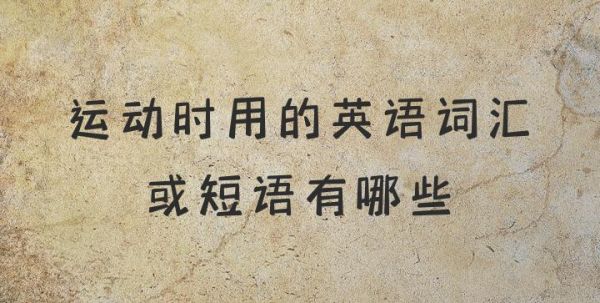 运动时用的英语词汇
或短语有哪些